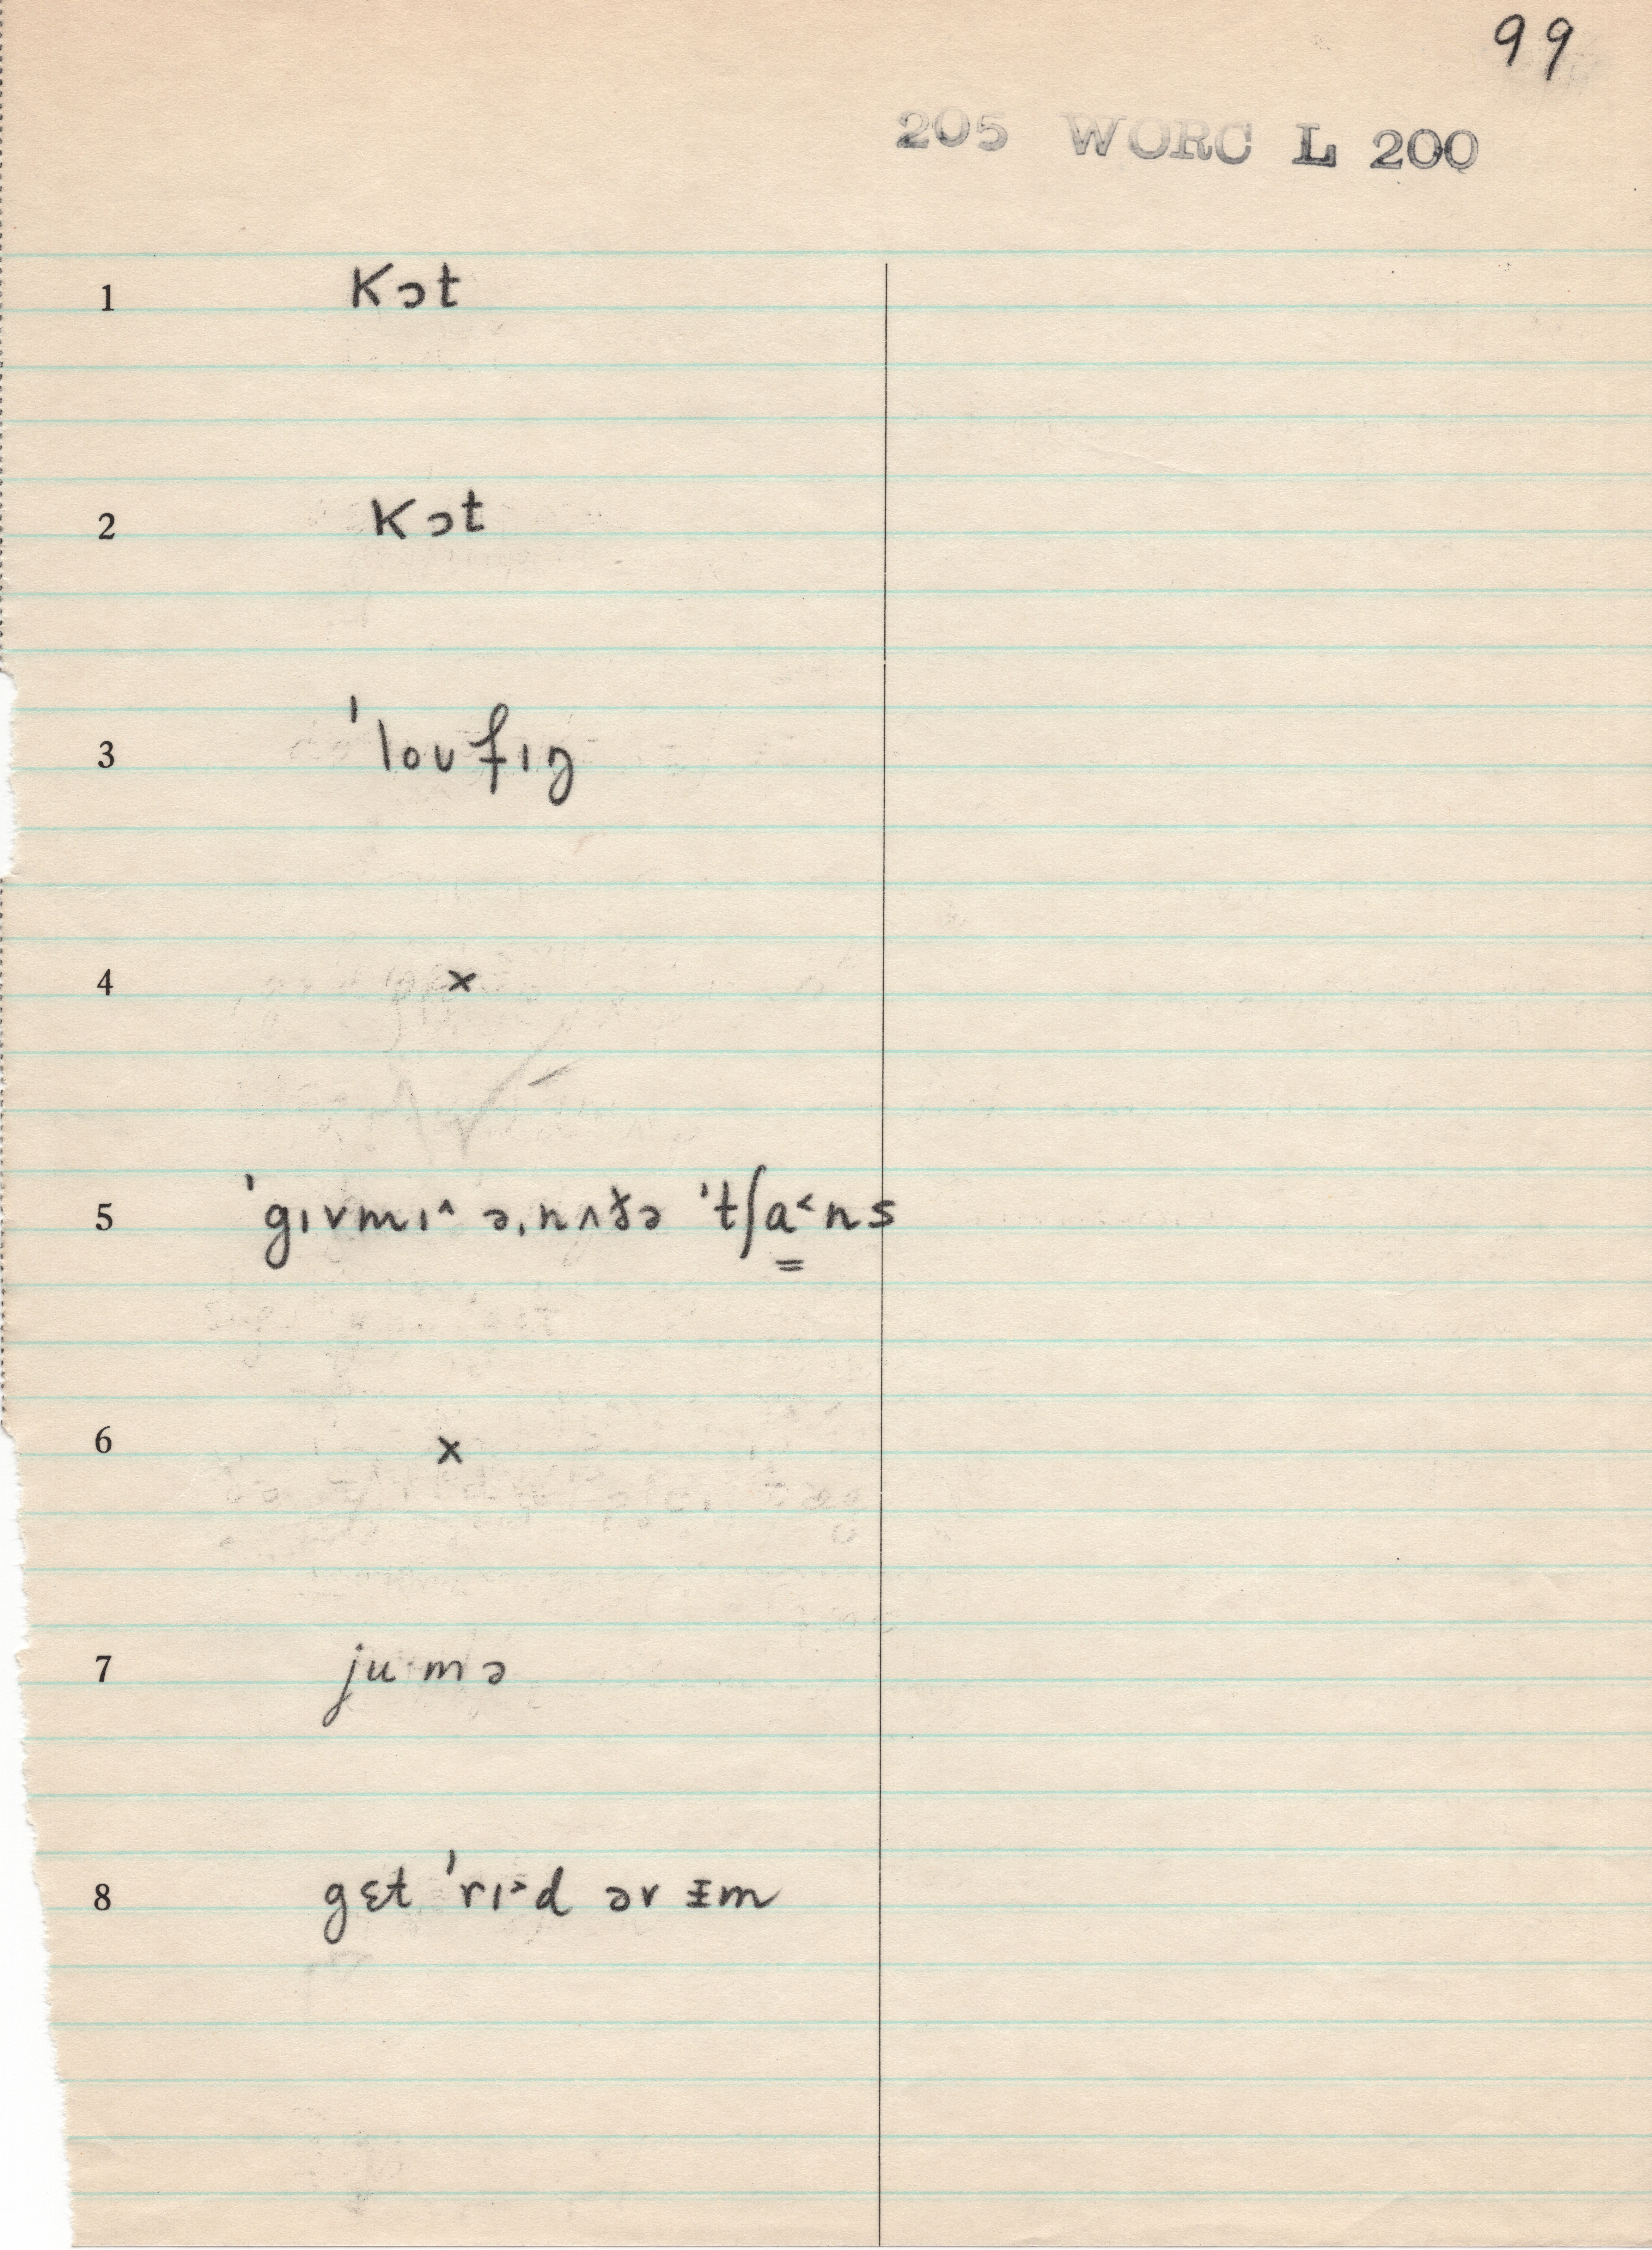 99
205 WORC L 200
1 kɔt
2 kɔt
3 ˈloʊfɪŋ
4 ×
5 ˈgɪvmɪ^ əˌnʌðə ˈtʃa̳˂ns
6 ×
7 ju·mə
8 gɛt ˈrɪ˃d əv ɪ̵m